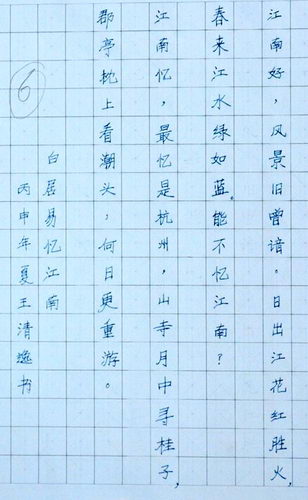 江南好，风景旧曾谙。日出江花红胜火，
春来江水绿如蓝。能不忆江南？
江南忆，最忆是杭州，山寺月中寻桂子，
郡亭枕上看潮头，何日更重游。
白居易忆江南
丙申年夏王清逸书
6